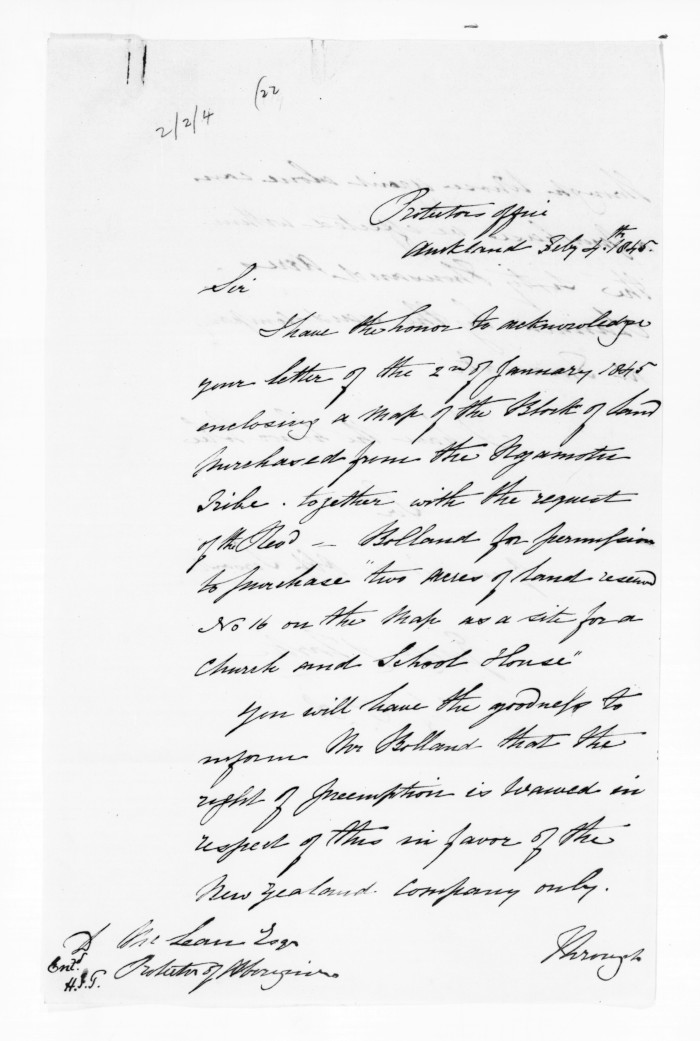 (22
2/2/4
Protectors office
Auckland Feby 4th 1845.
Sir
I have the honor to acknowledge
your letter of the 2nd of January 1845
enclosing a Map of the Block of Land
purchased from the Ngamotu
Tribe. together with the request
of the Revd — Bolland for permission
to purchase "two acres of Land reserved
No 16 on the Map as a site for a
Church and School House"
You will have the goodness to
inform Mr Bolland that the
right of preemption is waived in
respect of this in favor of the
New Zealand Company only.
Through
D Mc Lean Esqr
Protector of Aborigines
Entd
H.J.T.